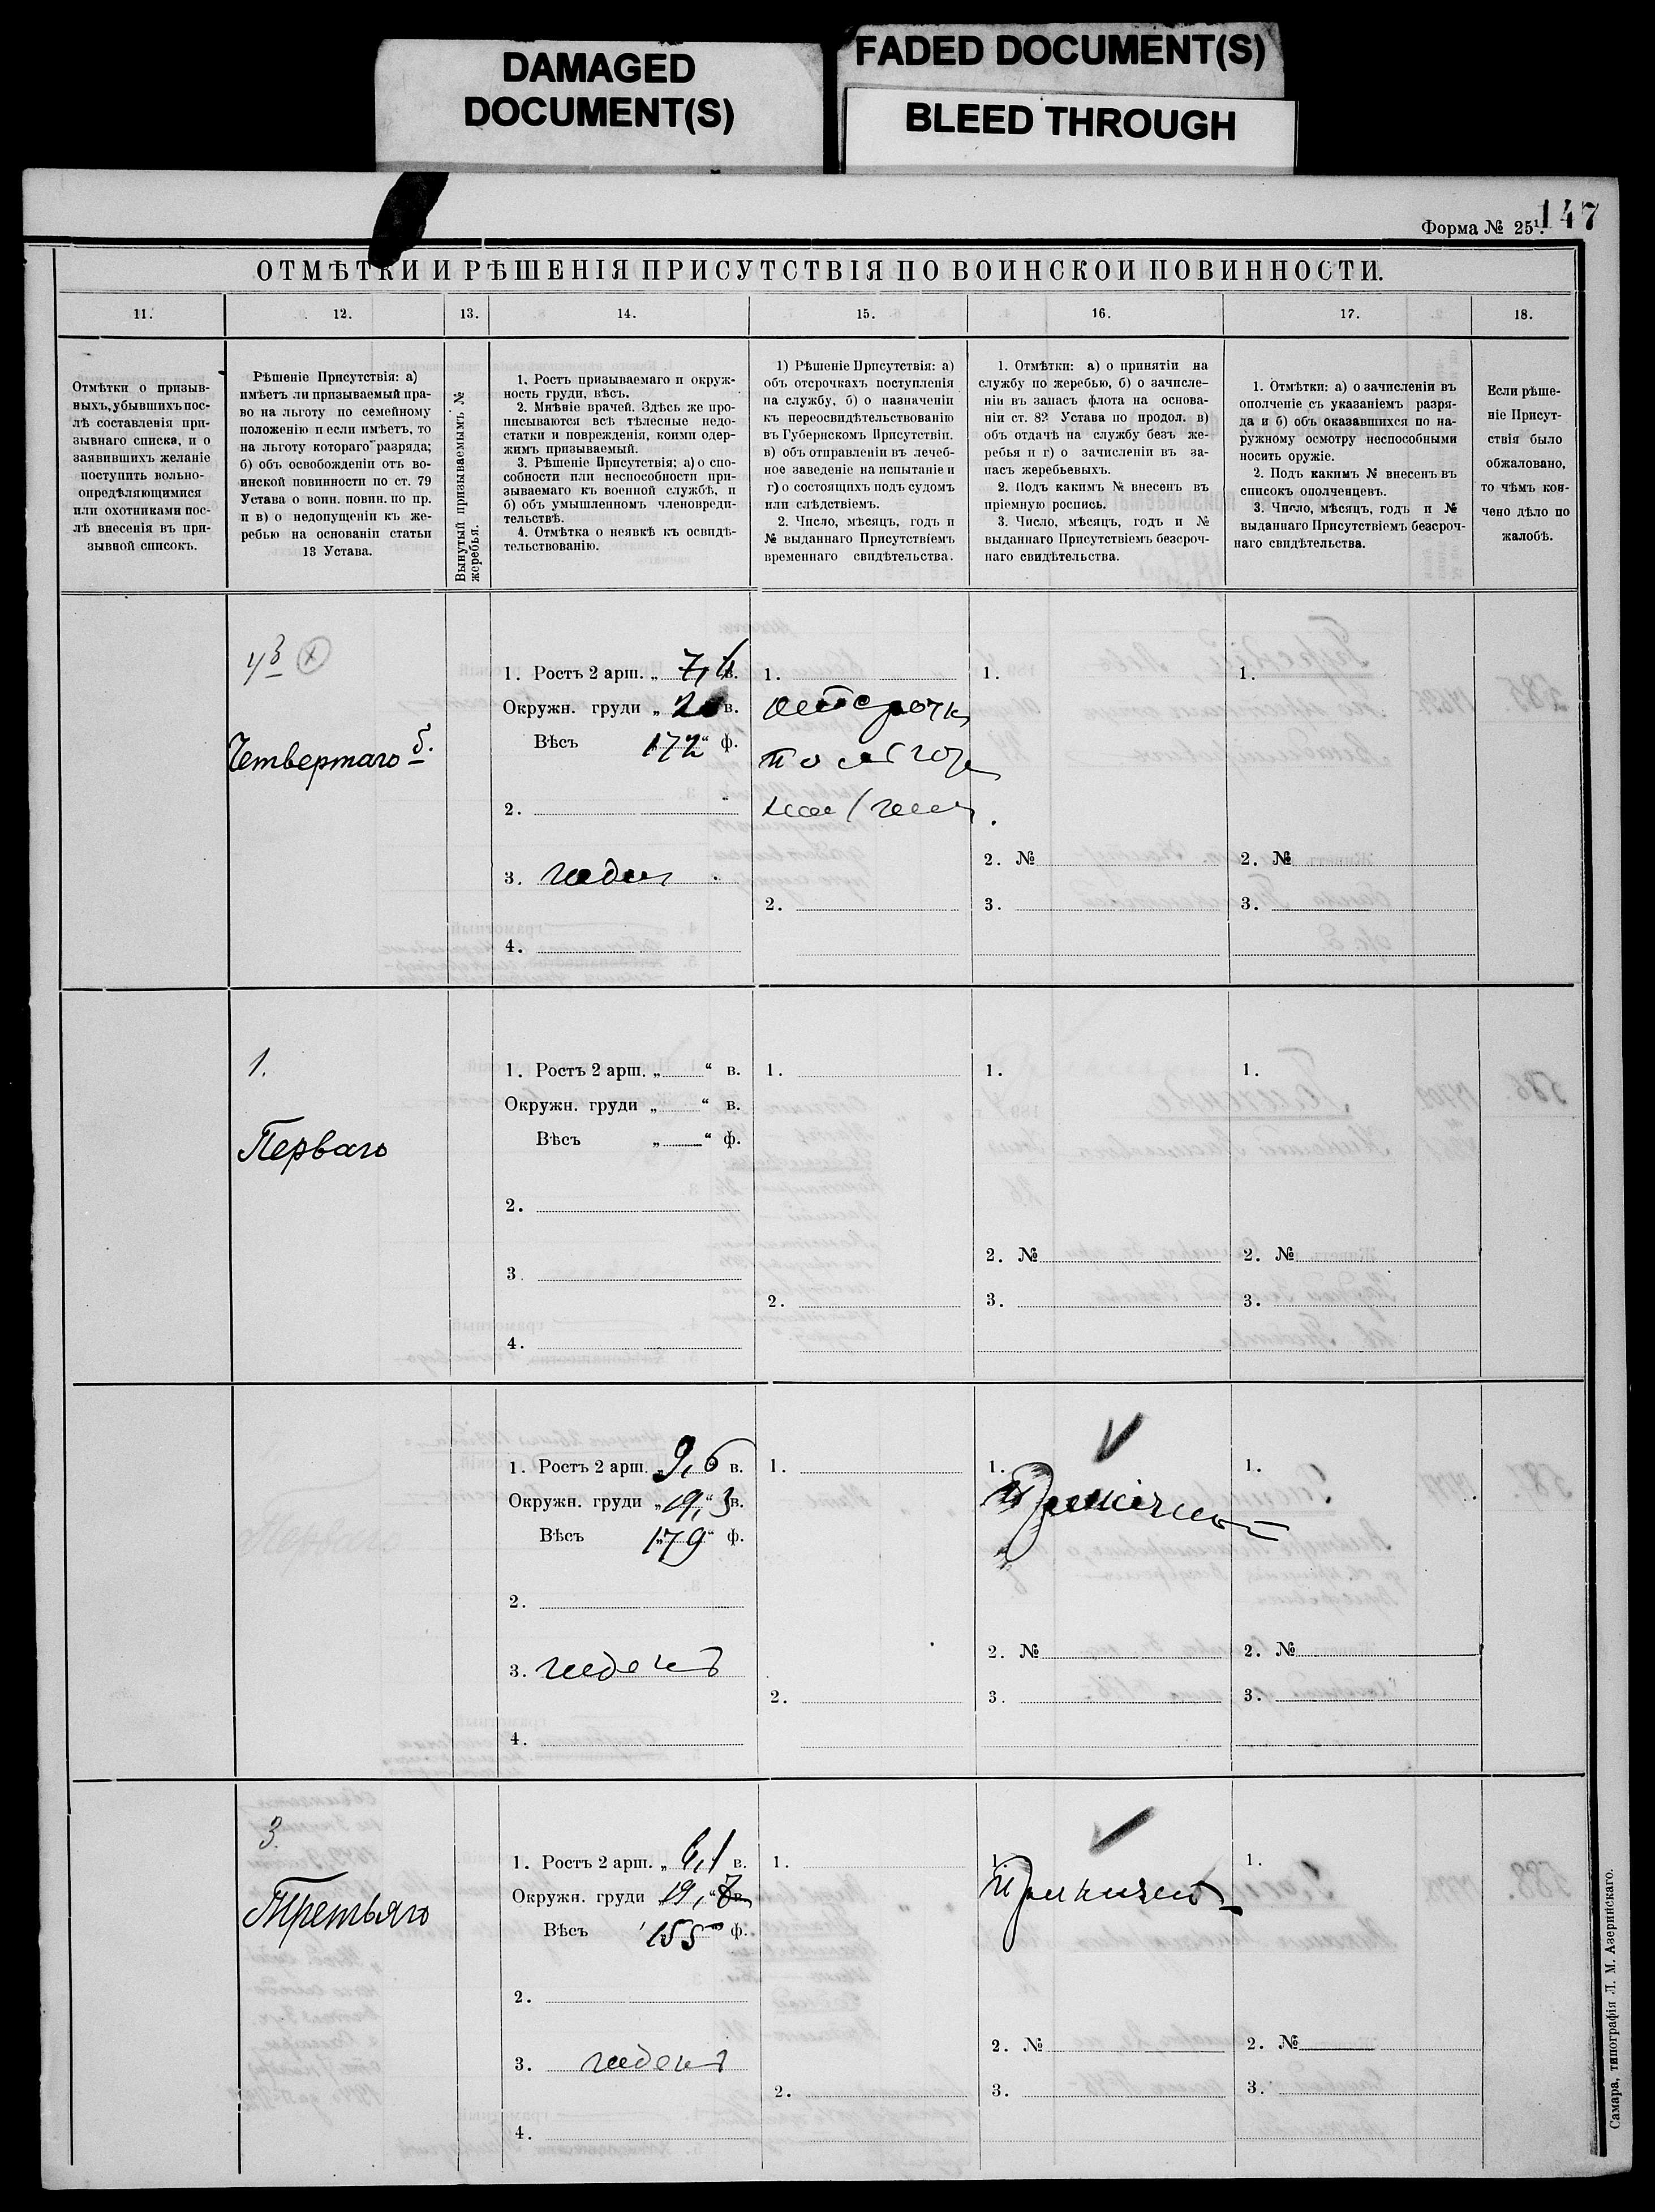 DAMAGED
DOCUMENT(S)
FADED DOCUMENT(S)
BLEED THROUGH
147
Форма № 25¹.
ОТМѢТКИ И РѢШЕНІЯ ПРИСУТСТВІЯ ПО ВОИНСКОЙ ПОВИННОСТИ.
11. 12. 13. 14. 15. 16. 17. 18.
Отмѣтки о призыв-
ныхъ, убывшихъ пос-
лѣ составленія при-
зывнаго списка, и о
заявившихъ желаніе
поступить вольно-
опредѣляющимися
или охотниками пос-
лѣ внесенія въ при-
зывной списокъ.
Рѣшеніе Присутствія: а)
имѣетъ ли призываемый пра-
во на льготу по семейному
положенію и если имѣетъ, то
на льготу котораго разряда;
б) объ освобожденіи отъ во-
инской повинности по ст. 79
Устава о воин. повин. по пр.
и в) о недопущеніи къ же-
ребью на основаніи статьи
13 Устава.
Вынутый призываемымъ №
жеребья.
1. Ростъ призываемаго и окруж-
ность груди, вѣсъ.
2. Мнѣніе врачей. Здѣсь же про-
писываются всѣ тѣлесные недо-
статки и поврежденія, коими одер-
жимъ призываемый.
3. Рѣшеніе Присутствія; а) о спо-
собности или неспособности при-
зываемаго къ военной службѣ, и
б) объ умышленномъ членовреди-
тельствѣ.
4. Отмѣтка о неявкѣ къ освидѣ-
тельствованію.
1) Рѣшеніе Присутствія: а)
объ отсрочкахъ поступленія
на службу, б) о назначеніи
къ переосвидѣтельствованію
въ Губернскомъ Присутствіи.
в) объ отправленіи въ лечеб-
ное заведеніе на испытаніе и
г) о состоящихъ подъ судомъ
или слѣдствіемъ.
2. Число, мѣсяцъ, годъ и
№ выданнаго Присутствіемъ
временнаго свидѣтельства.
1. Отмѣтки: а) о принятіи на
службу по жеребью, б) о зачисле-
ніи въ запасъ флота на основа-
ніи ст. 82 Устава по продол. в)
объ отдачѣ на службу безъ же-
ребья и г) о зачисленіи въ за-
пасъ жеребьевыхъ.
2. Подъ какимъ № внесенъ въ
пріемную роспись.
3. Число, мѣсяцъ, годъ и №
выданнаго Присутствіемъ безсроч-
наго свидѣтельства.
1. Отмѣтки: а) о зачисленіи въ
ополченіе съ указаніемъ разря-
да и б) объ оказавшихся по на-
ружному осмотру неспособными
носить оружіе.
2. Подъ какимъ № внесенъ въ
списокъ ополченцевъ.
3. Число, мѣсяцъ, годъ и №
выданнаго Присутствіемъ безсроч-
наго свидѣтельства.
Если рѣше-
ніе Присут-
ствія было
обжаловано,
то чѣмъ кон-
чено дѣло по
жалобѣ.
Четвертаго б.
1. Ростъ 2 арш. „ 7, в.
Окружн. груди „ в.
Вѣсъ 172 ф.
2.
3. годен
4.
1.
отсрочк
2.
1.
2. №
3.
1.
2. №
3.
1.
Перваго
1. Ростъ 2 арш. „ “ в.
Окружн. груди „ “ в.
Вѣсъ „ “ ф.
2.
3.
4.
1.
2.
1.
2. №
3.
1.
2. №
3.
Перваго
1. Ростъ 2 арш. „ 9,6 в.
Окружн. груди „ 19,3 в.
Вѣсъ 179 ф.
2.
3. годенъ
4.
1.
2.
1.
2. №
3.
1.
2. №
3.
3.
Третьяго
1. Ростъ 2 арш. „ 6,1 в.
Окружн. груди 19, в.
Вѣсъ 155 ф.
2.
3. годенъ
4.
1.
2.
1.
2. №
3.
1.
2. №
3.
Самара, типографія Л. М. Азеринскаго.